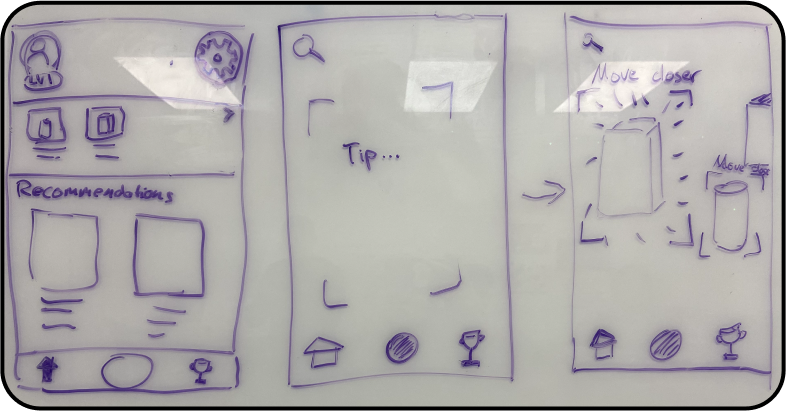 LV1
Recommendations
Tip...
Move closer
Move